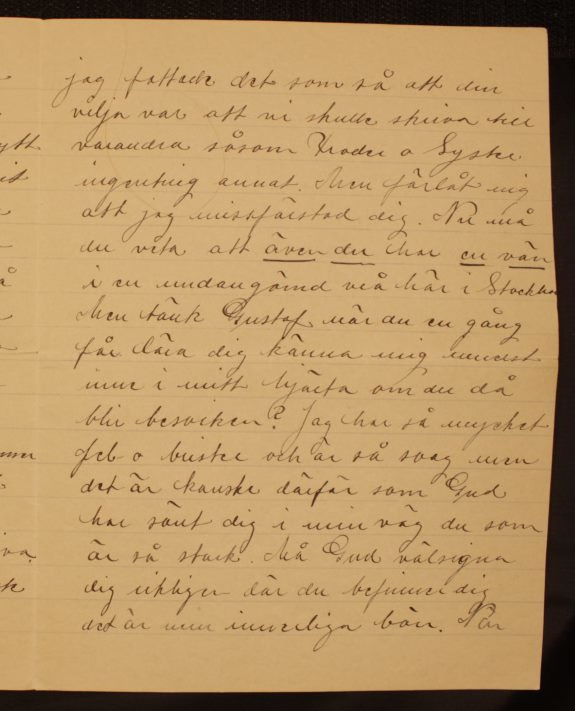 jag fattade det som så att din
vilja var att vi skulle skriva till
varandra såsom Broder o Syster
ingenting annat. Men förlåt mig
att jag missförstod dig. Nu må
du veta att även du har en vän
i en undangömd vrå här i Stockholm
Men tänk Gustaf när du en gång
får lära dig känna mig innerst
inne i mitt hjärta om du då
blir besviken? Jag har så mycket
fel o brister och är så svag men
det är kanske därför som Gud
har sänt dig i min väg du som
är så stark. Må Gud välsigna
dig rikligen där du befinner dig
det är min innerliga bön. När